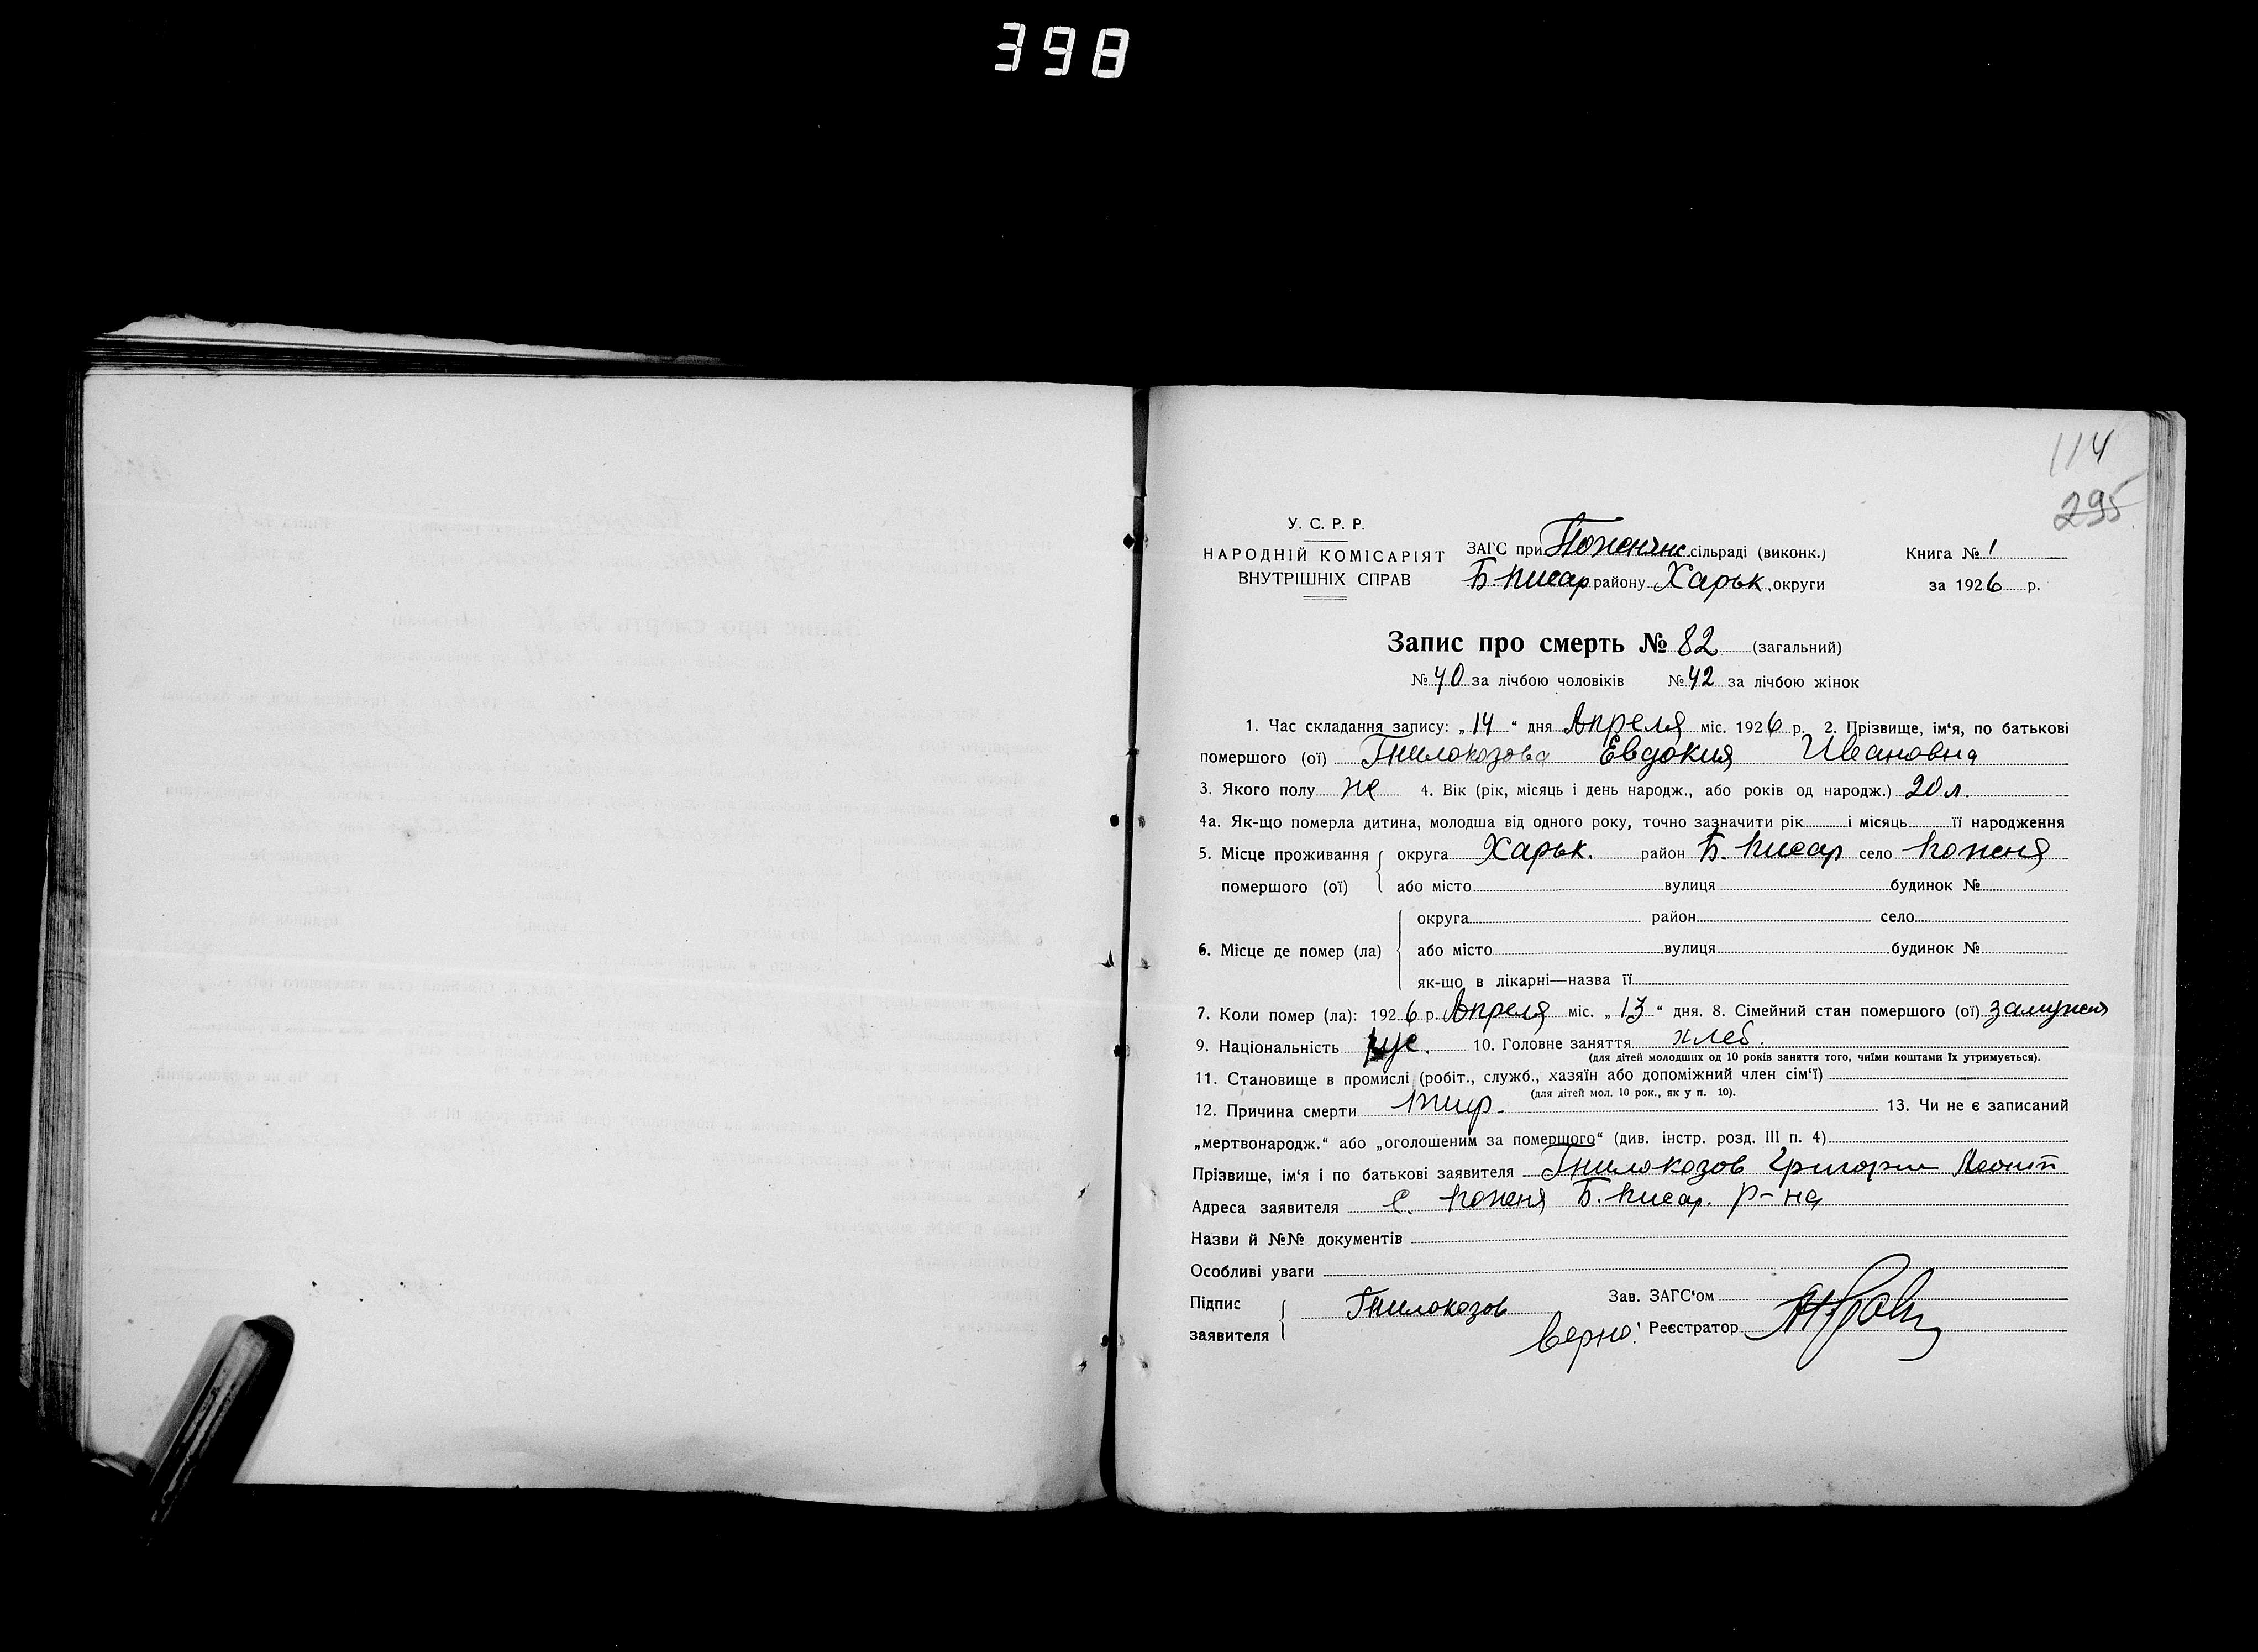 398
114
295
У. С. Р. Р.
НАРОДНІЙ КОМІСАРІЯТ
ВНУТРІШНІХ СПРАВ
ЗАГС при Поженянс. сільраді (виконк.)
Б. Писар району Харьк. округи
Книга № 1
за 1926 р.
Запис про смерть № 82 (загальний)
№ 40 за лічбою чоловіків № 42 за лічбою жінок
1. Час складання запису: „14“ дня Апреля міс. 1926 р. 2. Прізвище, ім‘я, по батькові
помершого (ої) Гнилокозова Евдокия Ивановна
3. Якого полу же 4. Вік (рік, місяць і день народж., або років од народж.) 20 л.
4а. Як-що померла дитина, молодша від одного року, точно зазначити рік і місяць її народження
5. Місце проживання помершого (ої) округа Харьк. район Б. Писар село Поженя
або місто вулиця будинок №
округа район село
6. Місце де помер (ла) або місто вулиця будинок №
як-що в лікарні—назва її
7. Коли помер (ла): 1926 р. Апреля міс. „13“ дня. 8. Сімейний стан помершого (ої) замужня
9. Національність рус. 10. Головне заняття хлеб.
(для дітей молодших од 10 років заняття того, чиїми коштами їх утримується).
11. Становище в промислі (робіт., служб., хазяїн або допоміжний член сім‘ї)
(для дітей мол. 10 рок., як у п. 10).
12. Причина смерти тиф. 13. Чи не є записаний
„мертвонародж.“ або „оголошеним за померщого“ (див. інстр. розд. III п. 4)
Прізвище, ім‘я і по батькові заявителя Гнилокозов Григорий
Адреса заявителя с. Поженя Б. Писар. р-на
Назви й №№ документів
Особливі уваги
Підпис заявителя Гнилокозов
Зав. ЗАГС‘ом
Верно! Реєстратор